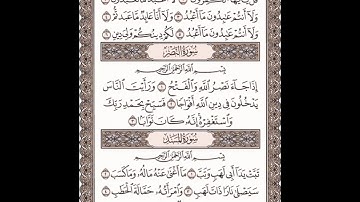 وَلَا أَنتُمْ عَٰبِدُونَ مَا أَعْبُدُ ۝ وَلَا أَنَا عَابِدٌ مَّا عَبَدتُّمْ ۝
وَلَا أَنتُمْ عَٰبِدُونَ مَا أَعْبُدُ ۝ لَكُمْ دِينُكُمْ وَلِيَ دِينِ ۝
سُورَةُ النَّصْرِ
بِسْمِ اللَّهِ الرَّحْمَٰنِ الرَّحِيمِ
إِذَا جَاءَ نَصْرُ اللَّهِ وَالْفَتْحُ ۝ وَرَأَيْتَ النَّاسَ
يَدْخُلُونَ فِي دِينِ اللَّهِ أَفْوَاجًا ۝ فَسَبِّحْ بِحَمْدِ رَبِّكَ
وَاسْتَغْفِرْهُ إِنَّهُ كَانَ تَوَّابًا ۝
سُورَةُ المَسَدِ
بِسْمِ اللَّهِ الرَّحْمَٰنِ الرَّحِيمِ
تَبَّتْ يَدَا أَبِي لَهَبٍ وَتَبَّ ۝ مَا أَغْنَىٰ عَنْهُ مَالُهُ وَمَا كَسَبَ ۝
سَيَصْلَىٰ نَارًا ذَاتَ لَهَبٍ ۝ وَامْرَأَتُهُ حَمَّالَةَ الْحَطَبِ ۝